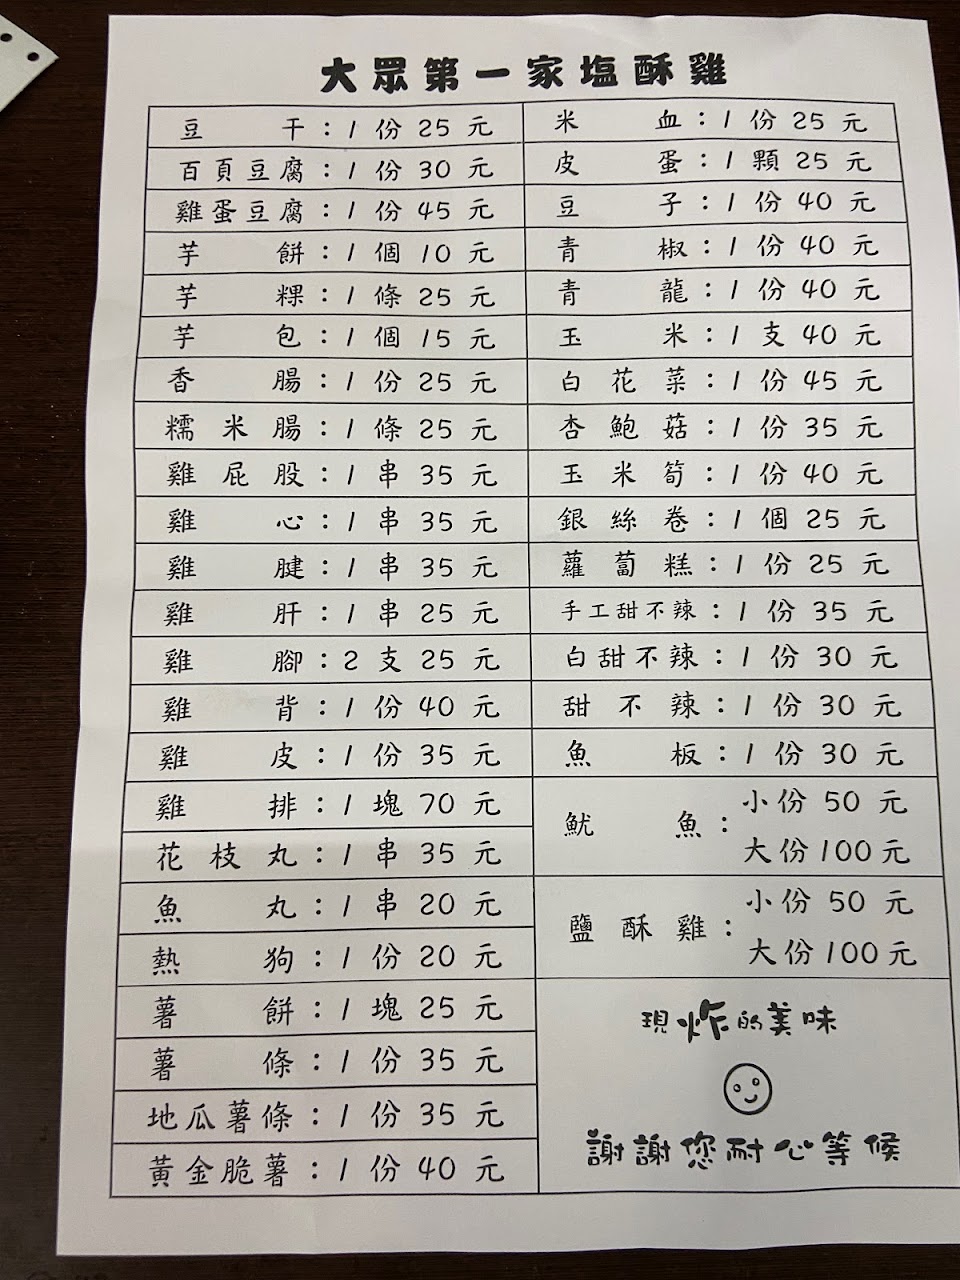 大眾第一家塩酥雞
豆干：1份25元
百頁豆腐：1份30元
雞蛋豆腐：1份45元
芋餅：1個10元
芋粿：1條25元
芋包：1個15元
香腸：1份25元
糯米腸：1條25元
雞屁股：1串35元
雞心：1串35元
雞腱：1串35元
雞肝：1串25元
雞腳：2支25元
雞背：1份40元
雞皮：1份35元
雞排：1塊70元
花枝丸：1串35元
魚丸：1串20元
熱狗：1份20元
薯餅：1塊25元
薯條：1份35元
地瓜薯條：1份35元
黃金脆薯：1份40元
米血：1份25元
皮蛋：1顆25元
豆子：1份40元
青椒：1份40元
青龍：1份40元
玉米：1支40元
白花菜：1份45元
杏鮑菇：1份35元
玉米筍：1份40元
銀絲卷：1個25元
蘿蔔糕：1份25元
手工甜不辣：1份35元
白甜不辣：1份30元
甜不辣：1份30元
魚板：1份30元
魷魚：小份50元
大份100元
鹽酥雞：小份50元
大份100元
現炸的美味
謝謝您耐心等候